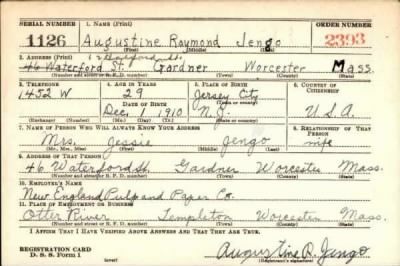 SERIAL NUMBER 1. NAME (Print) ORDER NUMBER
1126 Augustine Raymond Jengo 2393
(First) (Middle) (Last)
2. ADDRESS (Print)
46 Waterford St. Gardner Worcester Mass
(Number and street or R. F. D. number) (Town) (County) (State)
3. TELEPHONE 4. AGE IN YEARS 5. PLACE OF BIRTH 6. COUNTRY OF CITIZENSHIP
1452 W 29 Jersey City
DATE OF BIRTH (Town or county)
Dec 1 1910 N.J. U.S.A.
(Exchange) (Number) (Mo.) (Day) (Yr.) (State or country)
7. NAME OF PERSON WHO WILL ALWAYS KNOW YOUR ADDRESS 8. RELATIONSHIP OF THAT PERSON
Mrs. Jessie Jengo wife
(Mr., Mrs., Miss) (First) (Middle) (Last)
9. ADDRESS OF THAT PERSON
46 Waterford St. Gardner Worcester Mass.
(Number and street or R. F. D. number) (Town) (County) (State)
10. EMPLOYER'S NAME
New England Pulp and Paper Co.
11. PLACE OF EMPLOYMENT OR BUSINESS
Otter River Templeton Worcester Mass.
(Number and street or R. F. D. number) (Town) (County) (State)
I AFFIRM THAT I HAVE VERIFIED ABOVE ANSWERS AND THAT THEY ARE TRUE.
REGISTRATION CARD
D. S. S. Form 1 (over) Augustine R. Jengo
(Registrant's signature)